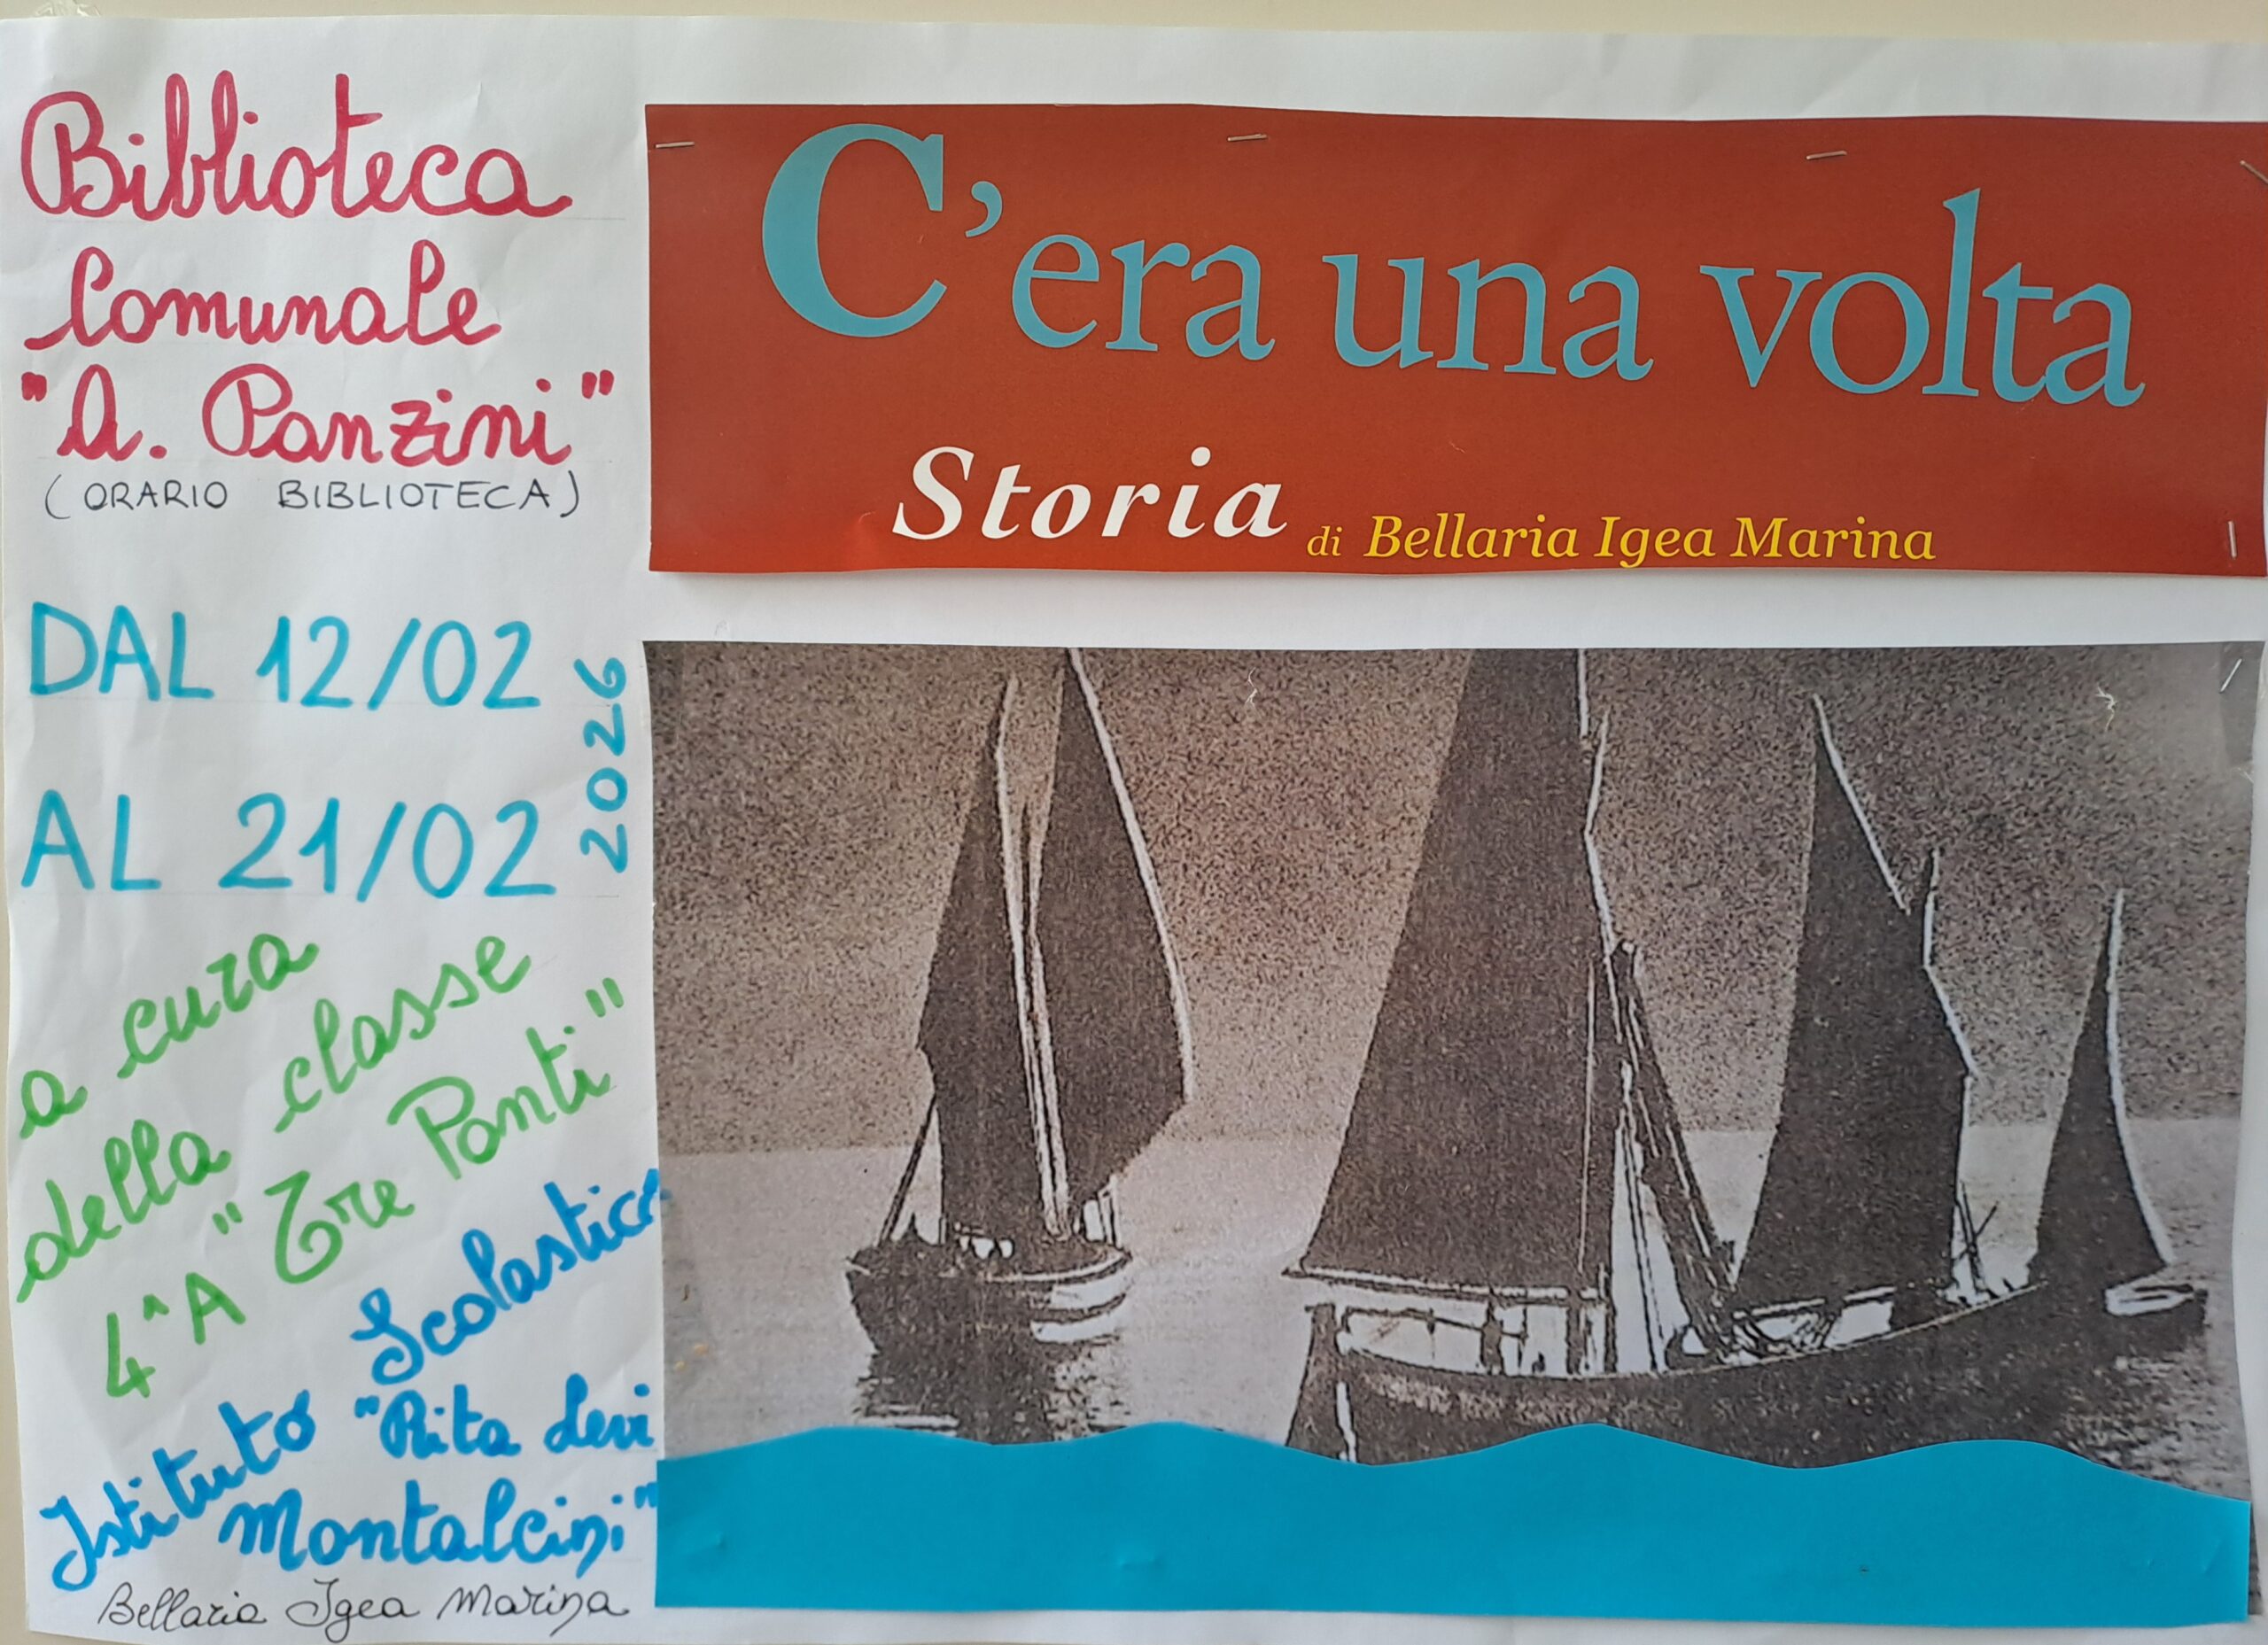 Biblioteca
Comunale
"A. Panzini"
(ORARIO BIBLIOTECA)
DAL 12/02
AL 21/02
2026
a cura
della classe
4ªA "Tre Ponti"
Istituto Scolastico
"Rita Levi
Montalcini"
Bellaria Igea Marina
C'era una volta
Storia di Bellaria Igea Marina